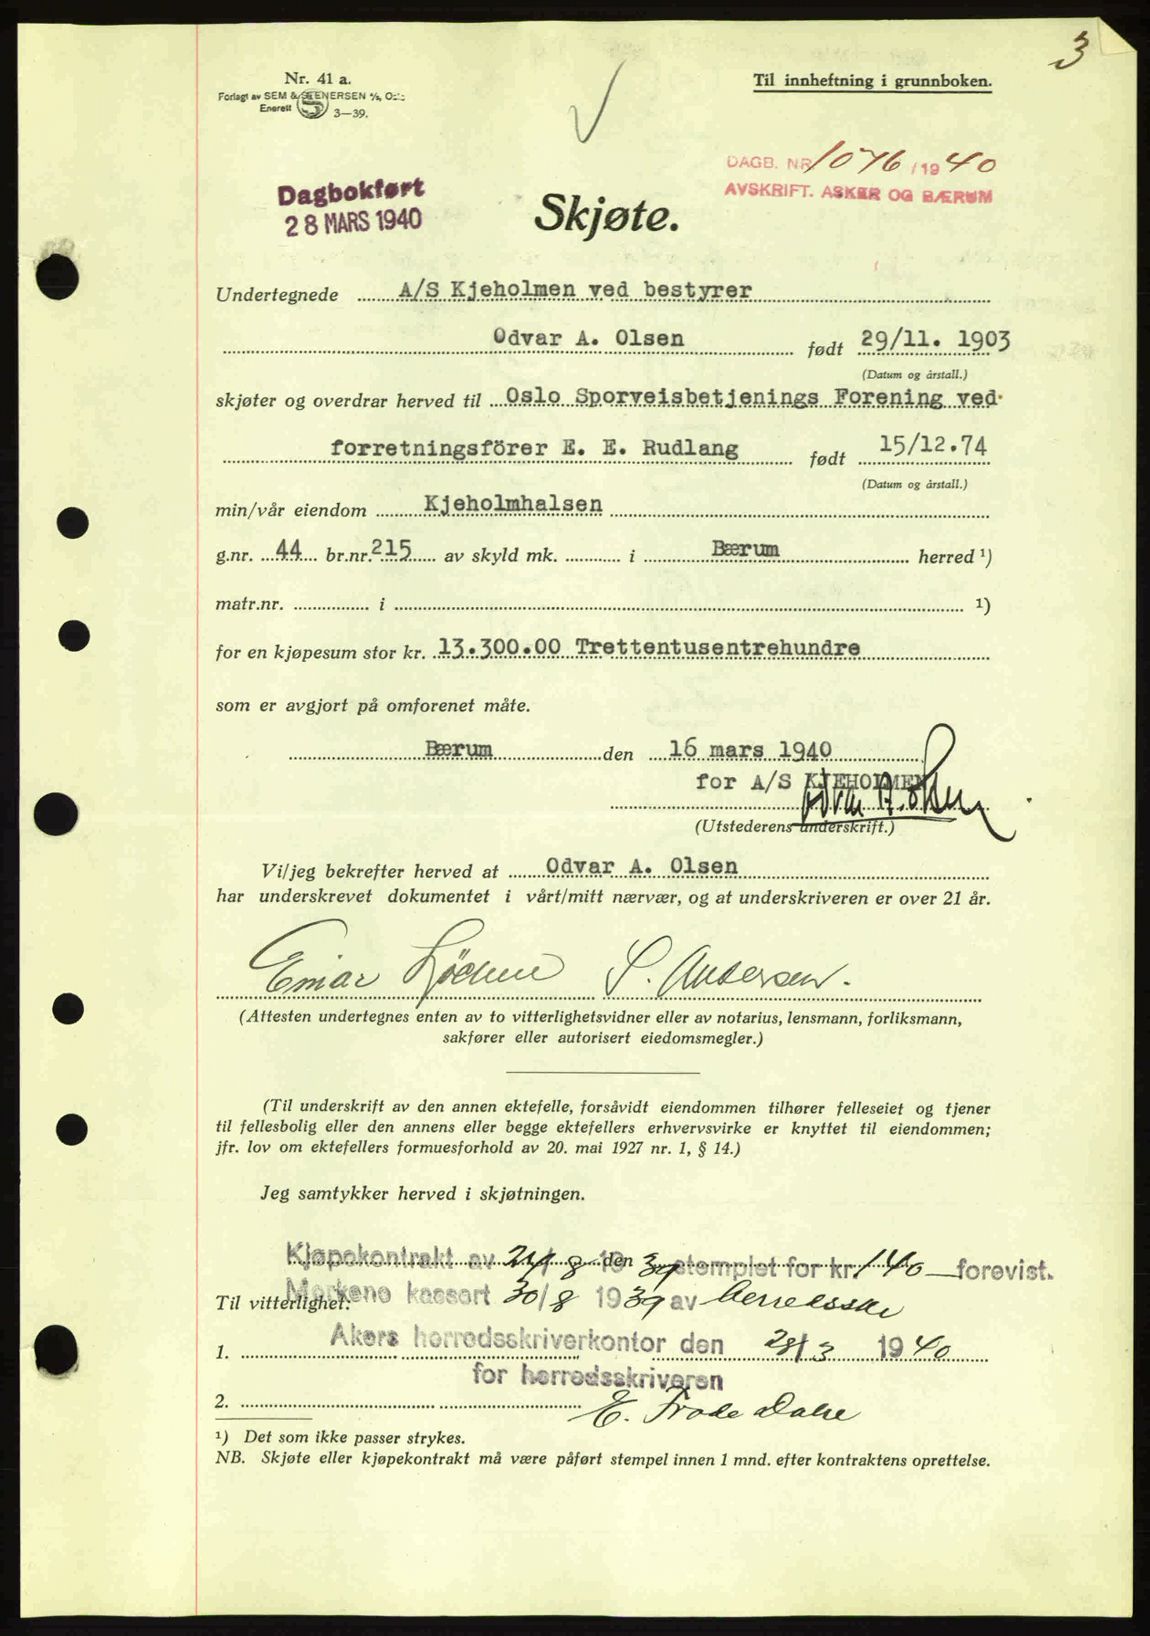 3
Nr. 41 a.
Forlagt av SEM & STENERSEN A/S, Oslo
Enerett 3—39.
Til innheftning i grunnboken.
DAGB. NR 1076 / 19 40
AVSKRIFT. ASKER OG BÆRUM
Dagbokført
28 MARS 1940
Skjøte.
Undertegnede A/S Kjeholmen ved bestyrer
Odvar A. Olsen født 29/11. 1903
(Datum og årstall.)
skjøter og overdrar herved til Oslo Sporveisbetjenings Forening ved
forretningsförer E. E. Rudlang født 15/12.74
(Datum og årstall.)
min/vår eiendom Kjeholmhalsen
g.nr. 44 br.nr. 215 av skyld mk. i Bærum herred ¹)
matr.nr. i ¹)
for en kjøpesum stor kr. 13.300.00 Trettentusentrehundre
som er avgjort på omforenet måte.
Bærum den 16 mars 1940
for A/S KJEHOLMEN
Odvar A. Olsen
(Utstederens underskrift.)
Vi/jeg bekrefter herved at Odvar A. Olsen
har underskrevet dokumentet i vårt/mitt nærvær, og at underskriveren er over 21 år.
Einar S. Andersen.
(Attesten undertegnes enten av to vitterlighetsvidner eller av notarius, lensmann, forliksmann,
sakfører eller autorisert eiedomsmegler.)
(Til underskrift av den annen ektefelle, forsåvidt eiendommen tilhører felleseiet og tjener
til fellesbolig eller den annens eller begge ektefellers erhvervsvirke er knyttet til eiendommen;
jfr. lov om ektefellers formuesforhold av 20. mai 1927 nr. 1, § 14.)
Jeg samtykker herved i skjøtningen.
Kjøpekontrakt av 24/8 den 1939 stemplet for kr. 140 — forevist.
Til vitterlighet: Merkene kassert 30/8 1939 av
1. Akers herredsskriverkontor den 28/3 1940
for herredsskriveren
2. E. Frode Dahe
¹) Det som ikke passer strykes.
NB. Skjøte eller kjøpekontrakt må være påført stempel innen 1 mnd. efter kontraktens oprettelse.